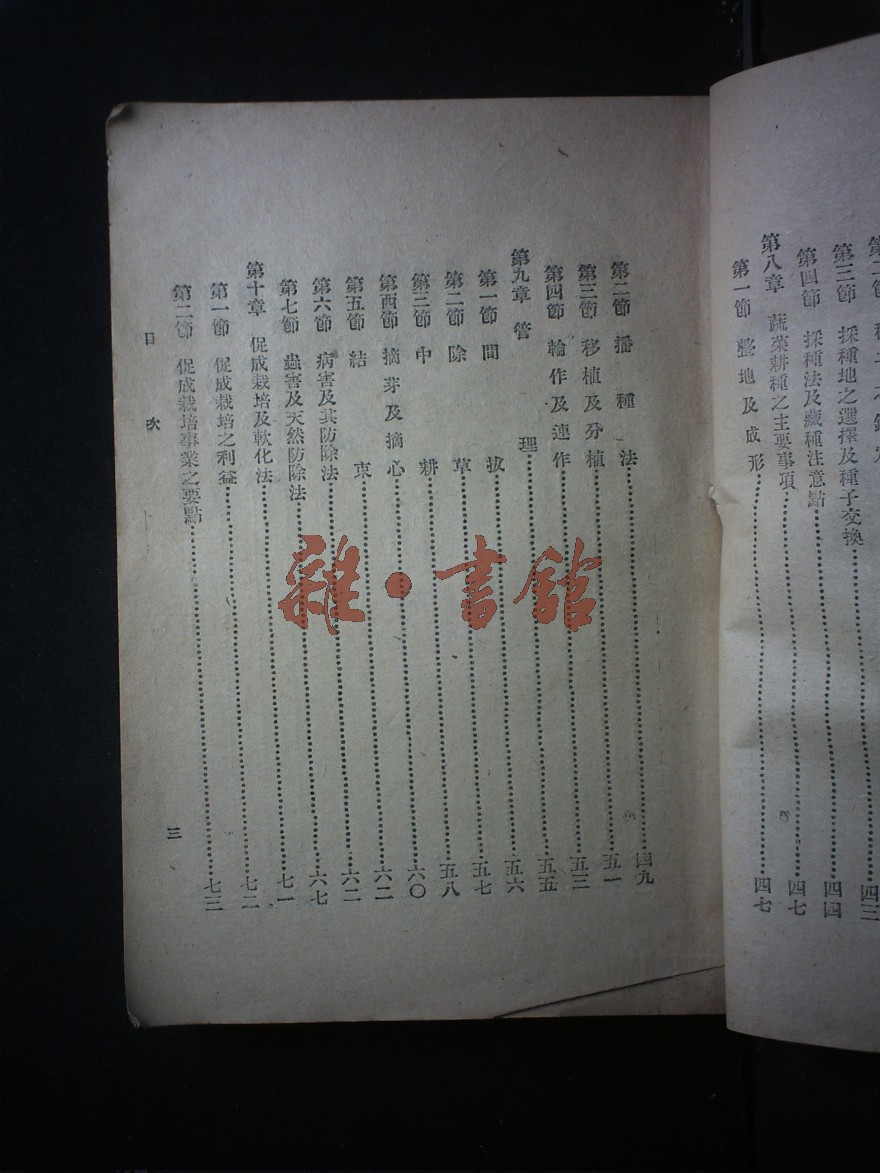 第三節 採種地之選擇及種子交換……四三
第四節 採種法及藏種注意點……四四
第八章 蔬菜耕種之主要事項……四七
第一節 整地及成形……四七
第二節 播種法……四九
第三節 移植及分植……五一
第四節 輪作及連作……五三
第九章 管理……五五
第一節 間拔……五六
第二節 除草……五七
第三節 中耕……五八
第西節 摘芽及摘心……六〇
第五節 結束……六二
第六節 病害及其防除法……六二
第七節 蟲害及天然防除法……六七
第十章 促成栽培及軟化法……七一
第一節 促成栽培之利益……七二
第二節 促成栽培事業之要點……七三
目次
三
雜·書館